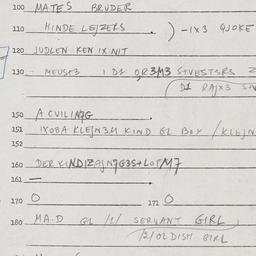 100 MATES BRUDER
110 HINDE LEJZERS ) -1X3 QJOKE
120 JUDLEN KEN IX NIT
130 MEUSTB I D1 QR3M3 STVESTSRS 2
( D1 RAJX3
150 A CVILING
151 IXOBA KLEJN3M KIND GL BOY / KLEJN
152
160 DER KINDIZAJNG3S+LOTM7
161 —
170 O 171 O
180 MA.D GL /1/ SERVANT GIRL,
/2/ OLDISH GIRL